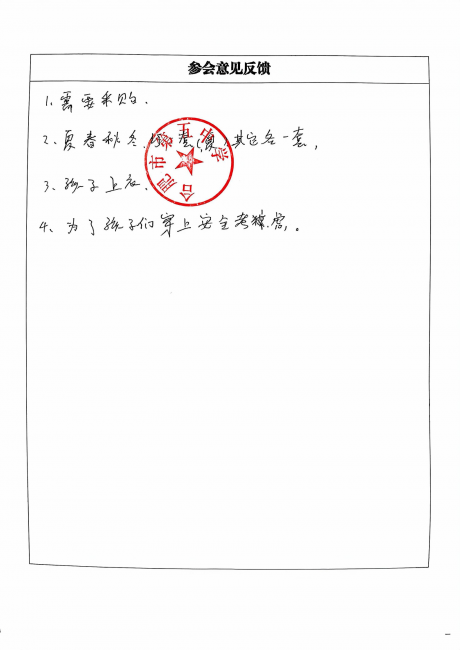 参会意见反馈
1. 需要采购.
2. 夏春秋冬, 套(夏), 其它各一套,
3. 孩子上衣.
4、为了孩子们穿上安全考虑。
合肥市